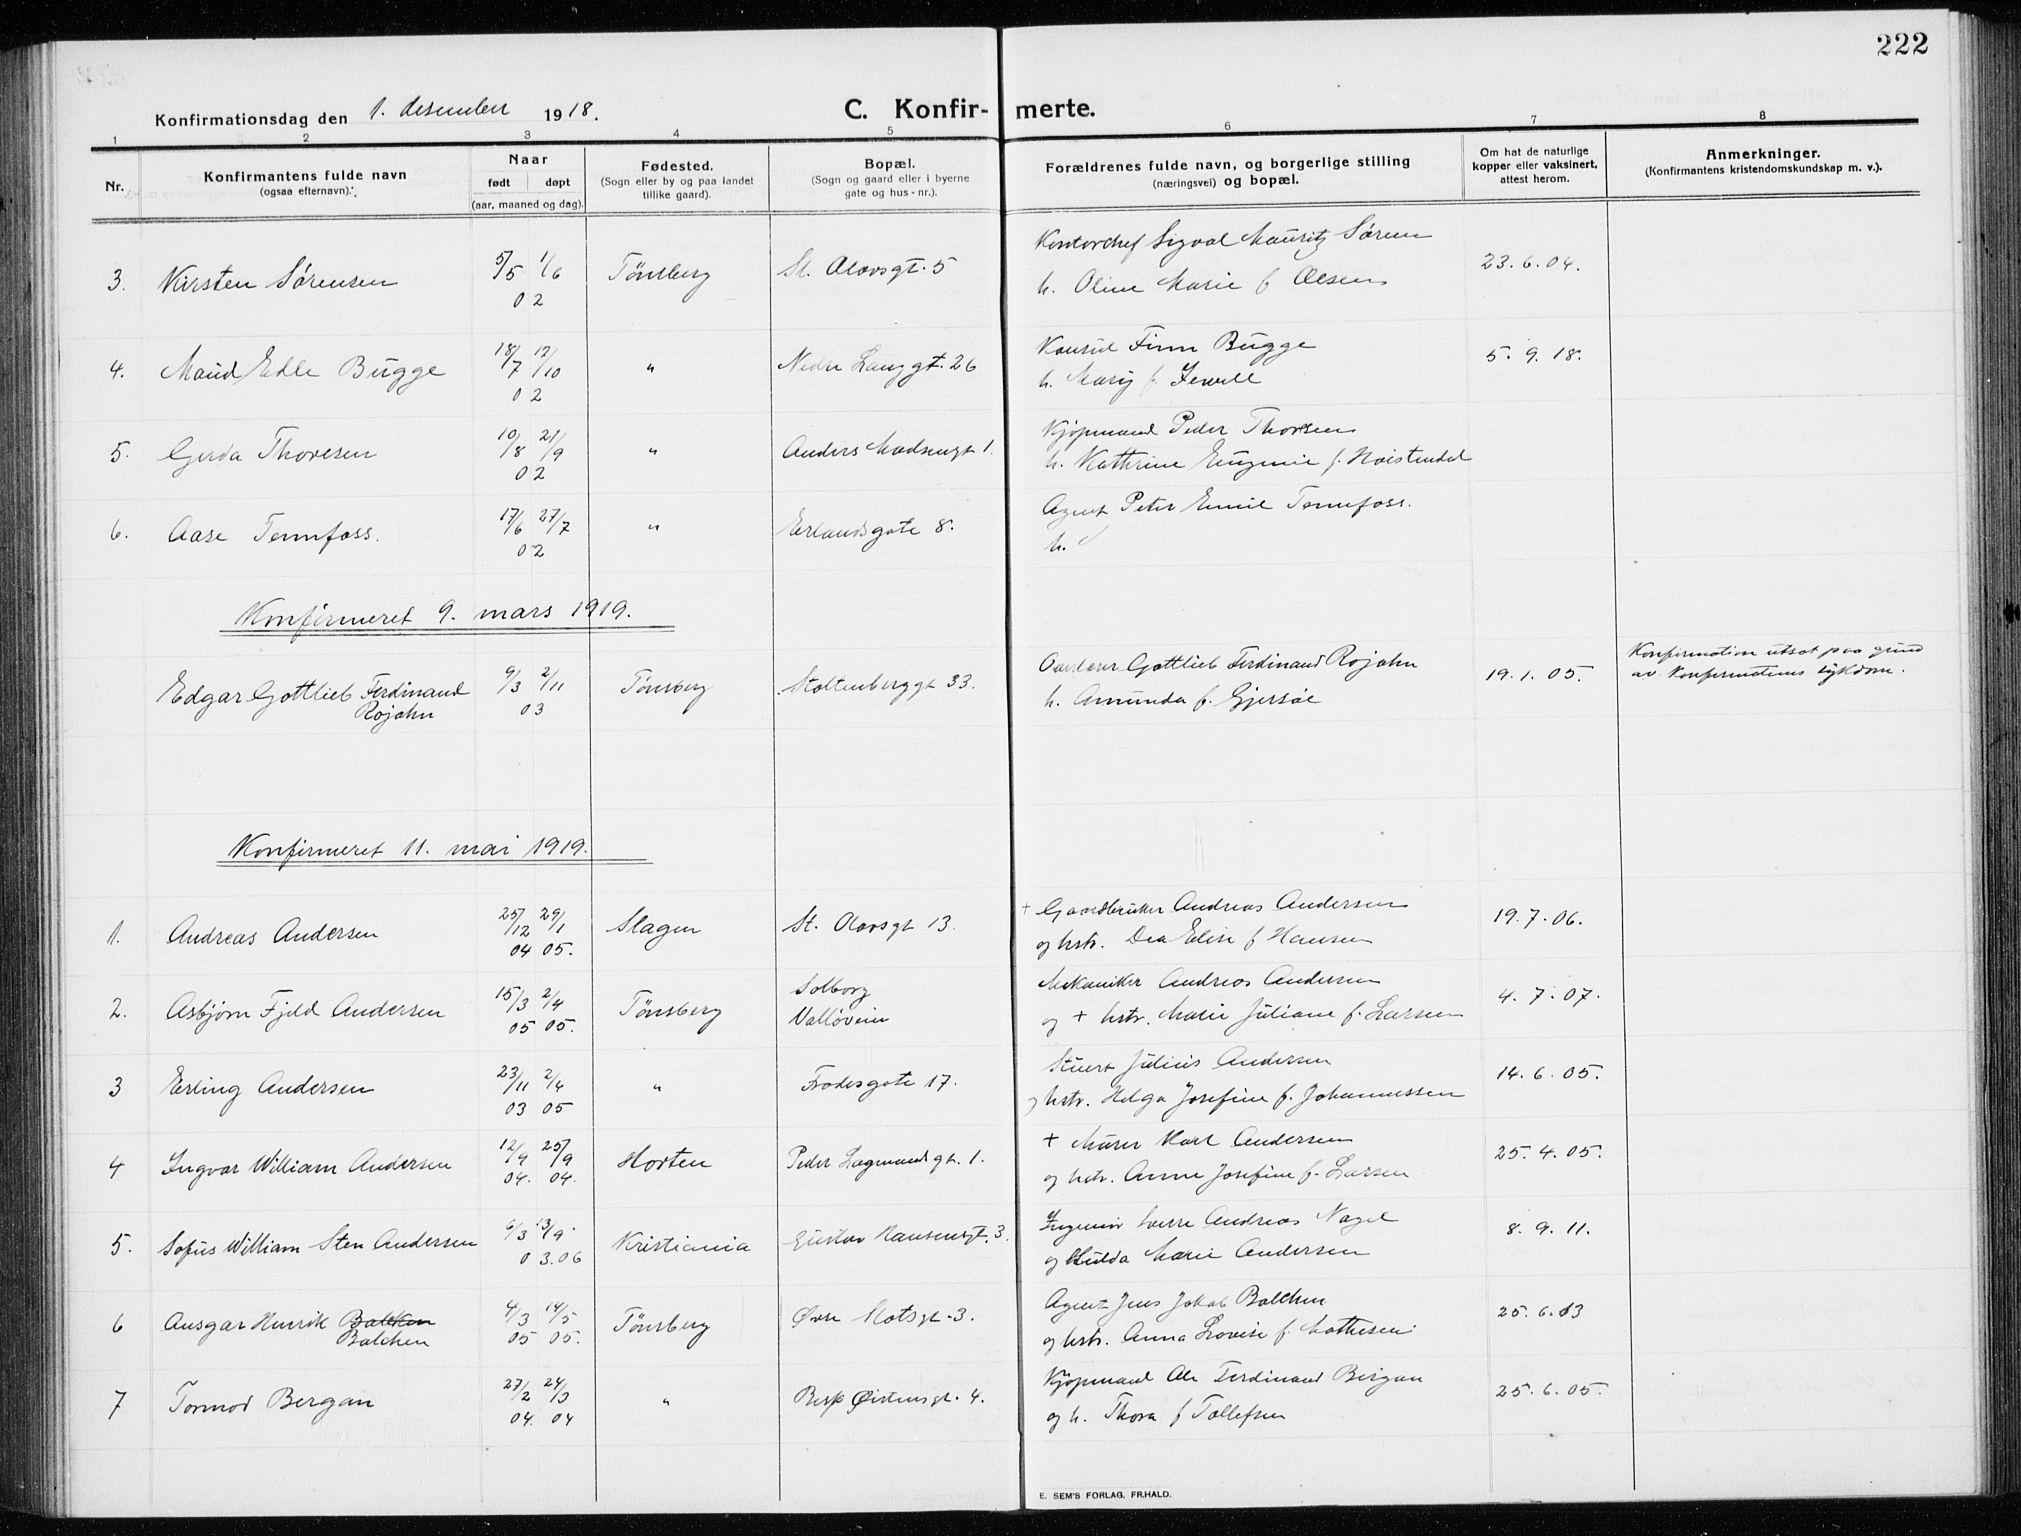 222
Konfirmationsdag den 1. desember 1918.
C. Konfirmerte.
1 2 3 4 5 6 7 8
Nr.
Konfirmantens fulde navn
(ogsaa efternavn).
Naar
født døpt
(aar, maaned og dag).
Fødested.
(Sogn eller by og paa landet
tillike gaard).
Bopæl.
(Sogn og gaard eller i byerne
gate og hus-nr.).
Forældrenes fulde navn, og borgerlige stilling
(næringsvei) og bopæl.
Om hat de naturlige
kopper eller vaksinert,
attest herom.
Anmerkninger.
(Konfirmantens kristendomskundskap m. v.).
Kontorchef Sigval Mauritz Sørensen
3. Kirsten Sørensen 5/5 1/6 02 Tønsberg St. Olavsgt. 5
h. Oline Marie f Olsen
23.6.04.
Konsul Finn Bugge
4. Maud Edle Bugge 18/7 12/10 02 " Nedre Langgt. 26
h. Mary f. Jewell
5.9.18.
Kjøpmand Peder Thoresen
5. Gerda Thoresen 10/8 21/9 02 " Anders Madsensgt 1.
h. Kathrine Eugenie f.
Agent Peter Emil Tennfoss.
6. Aase Tennfoss. 17/6 27/7 02 " Erlandsgate 8.
h.
Konfirmeret 9. mars 1919.
Edgar Gottlieb Ferdinand
Rojahn
9/3 2/11 03 Tønsberg Stoltenberggt 33.
Overlærer Gottlieb Ferdinand Rojahn
h. Amunda f. Gjersøe
19.1.05.
Konfirmation utsat paa grund
av konfirmantens sykdom.
Konfirmeret 11. mai 1919.
1. Andreas Andersen 25/12 04 29/1 05. Slagen St. Olavsgt 13.
+ Gaardbruker Andreas Andersen
og hstr. Dea Elise f Hansen
19.7.06.
2. Asbjørn Fjeld Andersen 15/3 05 2/4 05. Tønsberg Solborg
Valløveien
Mekaniker Andreas Andersen
og + hstr. Marie Juliane f. Larsen
4.7.07.
3 Erling Andersen 23/11 03 2/4 05 " Frodesgate 17.
Stuert Julius Andersen
og hstr. Helga Josefine f. Johannessen
14.6.05.
4 Ingvar William Andersen 12/4 04. 25/9 04. Horten Peder Lagmandsgt. 1.
+ Murer Karl Andersen
og hstr. Anne Josefine f. Larsen
25.4.05.
5. Sofus William Sten Andersen 6/3 03. 13/9 06 Kristiania Gustav Hansensgt. 3.
Ingeniør Sverre Andreas Nagel
og Hulda Marie Andersen
8.9.11.
6 Ansgar Henrik Balchen
Balchen
4/3 05 14/5 05. Tønsberg Øvre Slotsgt. 3.
Agent Jens Jakob Balchen
og hstr. Anna Lovise f. Mathesen
25.6.13
7 Tormod Bergan 27/2 04. 24/3 04 " Bisp Øistensgt. 4.
Kjøpmand Ole Ferdinand Bergan
og h. Thora f Tollefsen
25.6.05.
E. SEM'S FORLAG, FR.HALD.